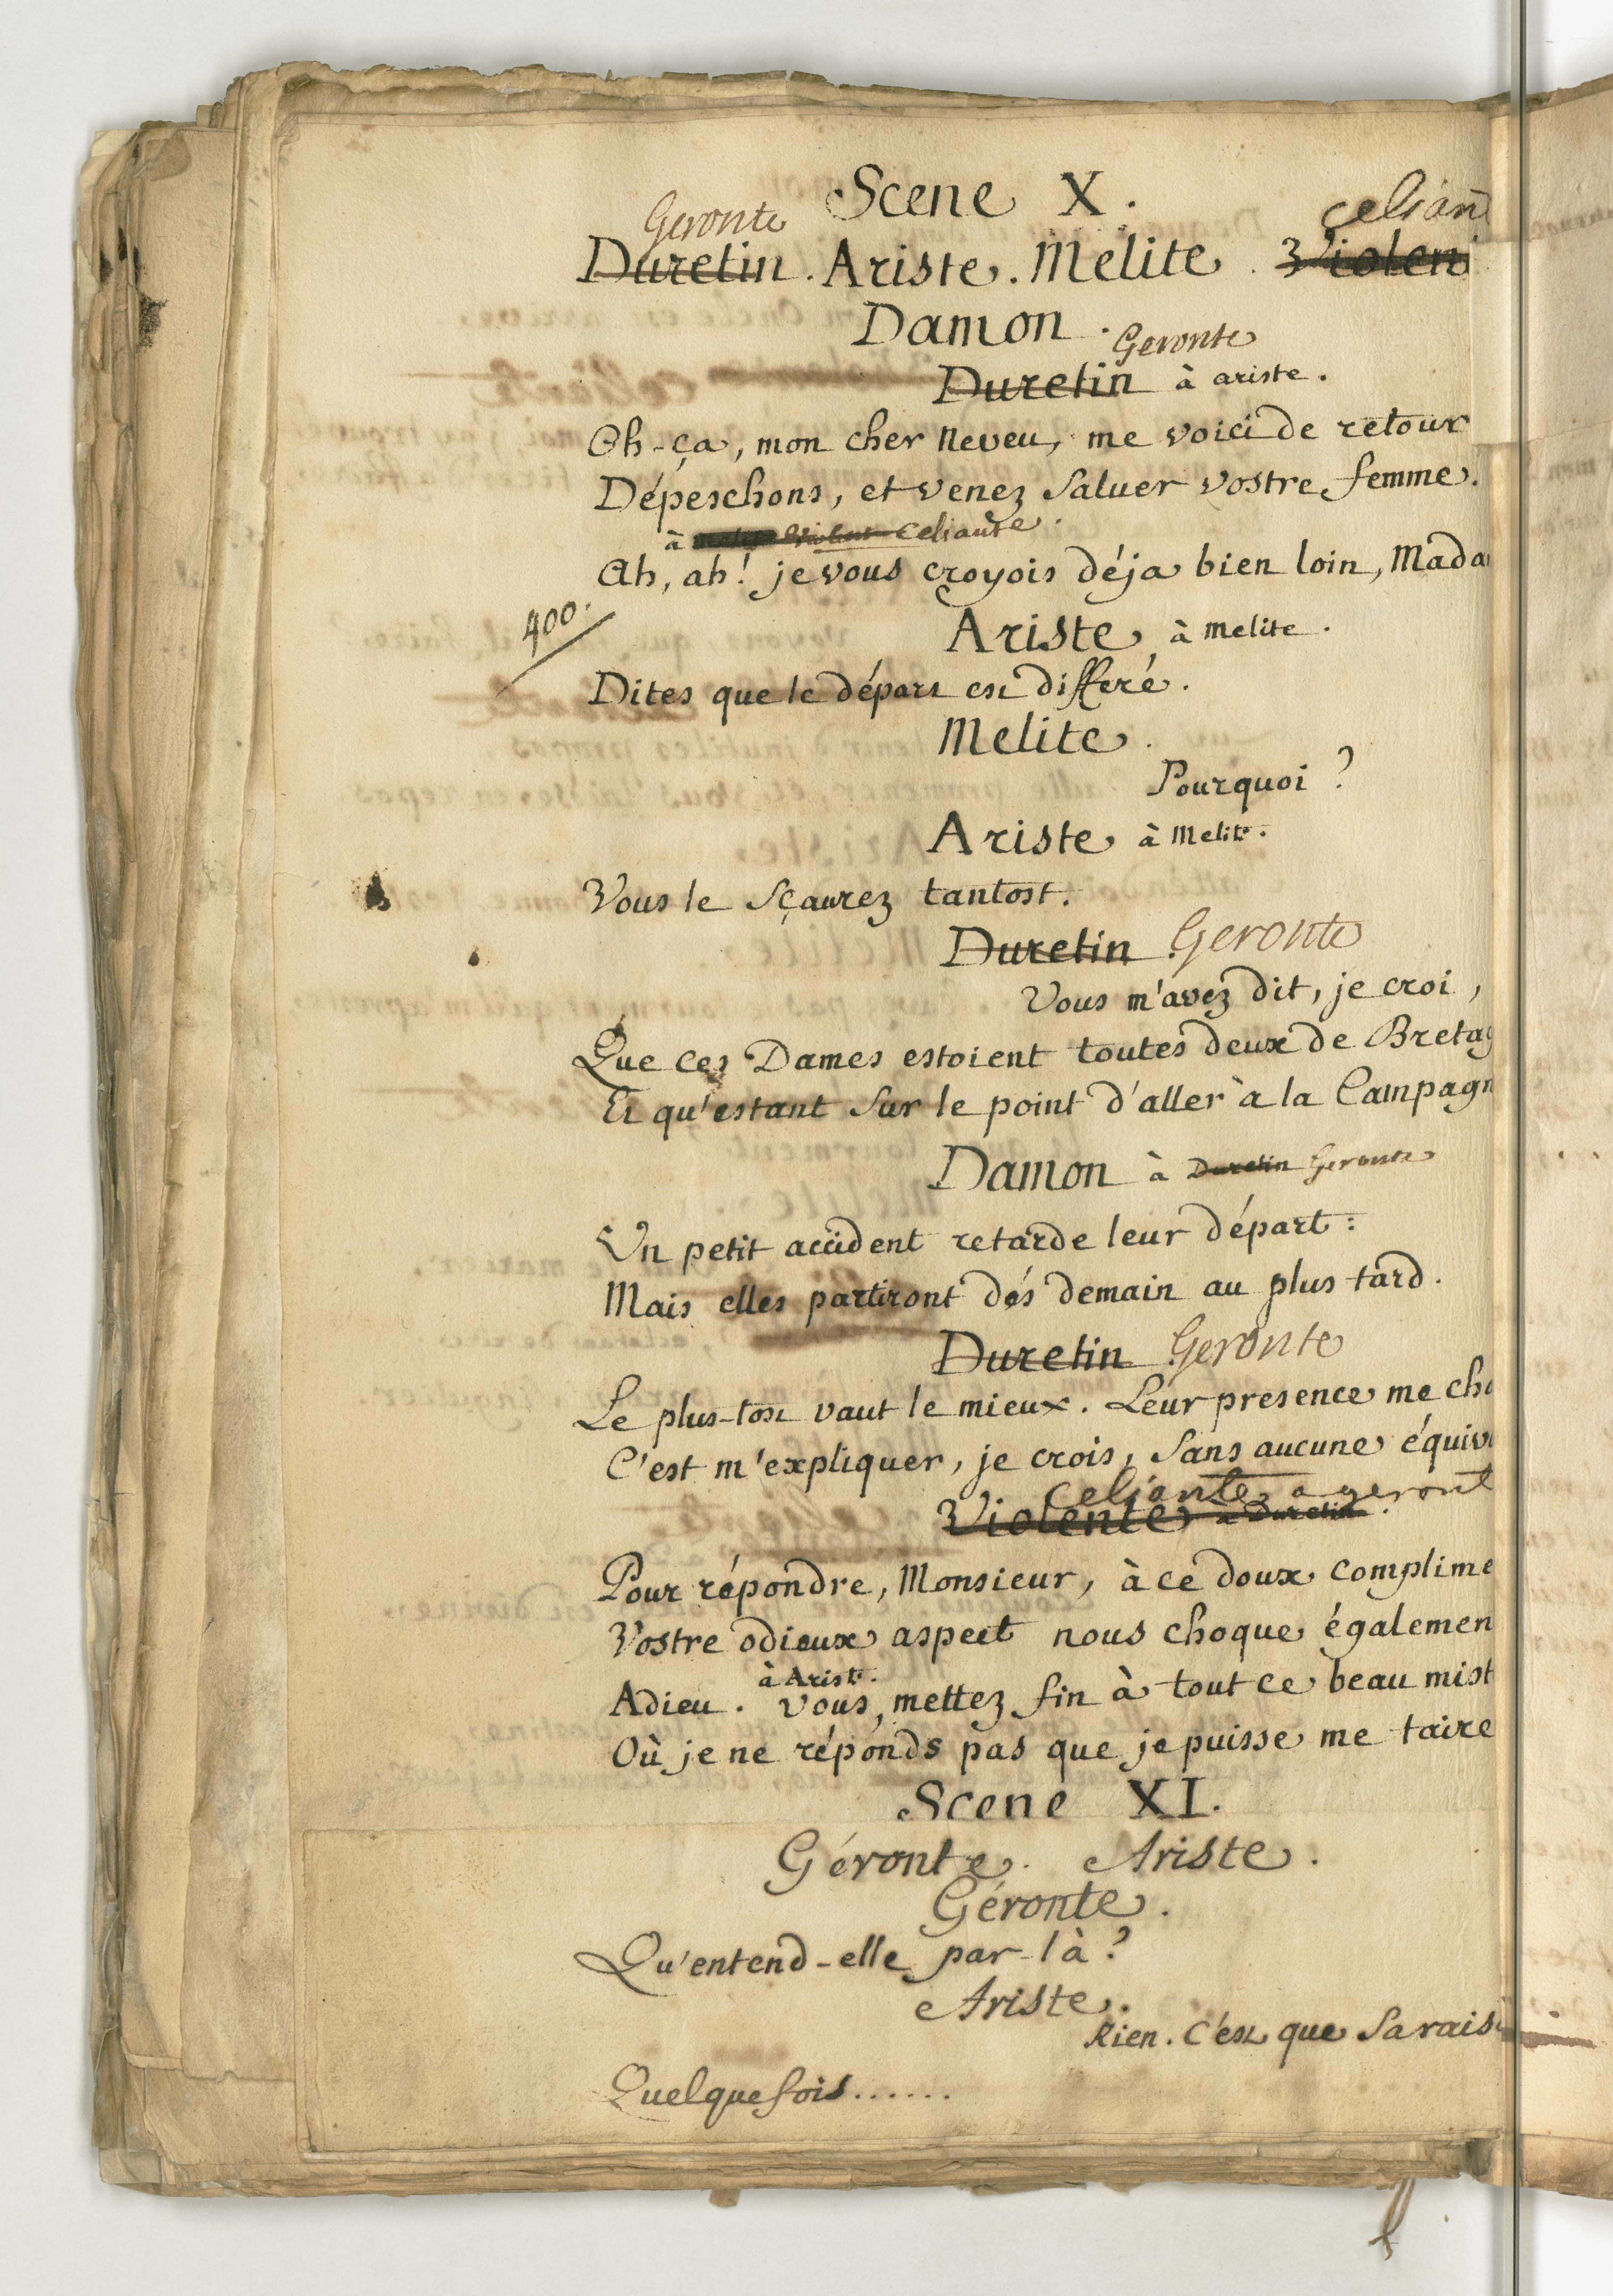 Scene X.
Geronte celian
Duretin. Ariste. Melite. Violen
Damon.
Geronte
Duretin à ariste.
Oh-ça, mon cher neveu, me voici de retour
Dépeschons, et venez saluer vostre femme.
à Celiante.
Ah, ah! je vous croyois déja bien loin, Mada
400.
Ariste, à melite.
Dites que le départ est differé.
Melite.
Pourquoi?
Ariste à Melite.
Vous le sçaurez tantost.
Duretin Geronte
Vous m'avez dit, je croi,
Que ces Dames estoient toutes deux de Bretag
Et qu'estant sur le point d'aller à la Campagn
Damon à Duretin Geronte
Un petit accident retarde leur départ:
Mais elles partiront dés demain au plus tard.
Duretin Geronte
Le plus-tost vaut le mieux. Leur presence me cho
C'est m'expliquer, je crois, sans aucune équivo
Celiante a geront
Violente à Duretin.
Pour répondre, Monsieur, à ce doux complime
Vostre odieux aspect nous choque égalemen
à Ariste.
Adieu. Vous, mettez fin à tout ce beau mist
Où je ne réponds pas que je puisse me taire
Scene XI.
Géronte. Ariste.
Géronte.
Qu'entend-elle par-là?
Ariste.
Rien. C'est que sa rais
Quelquefois......